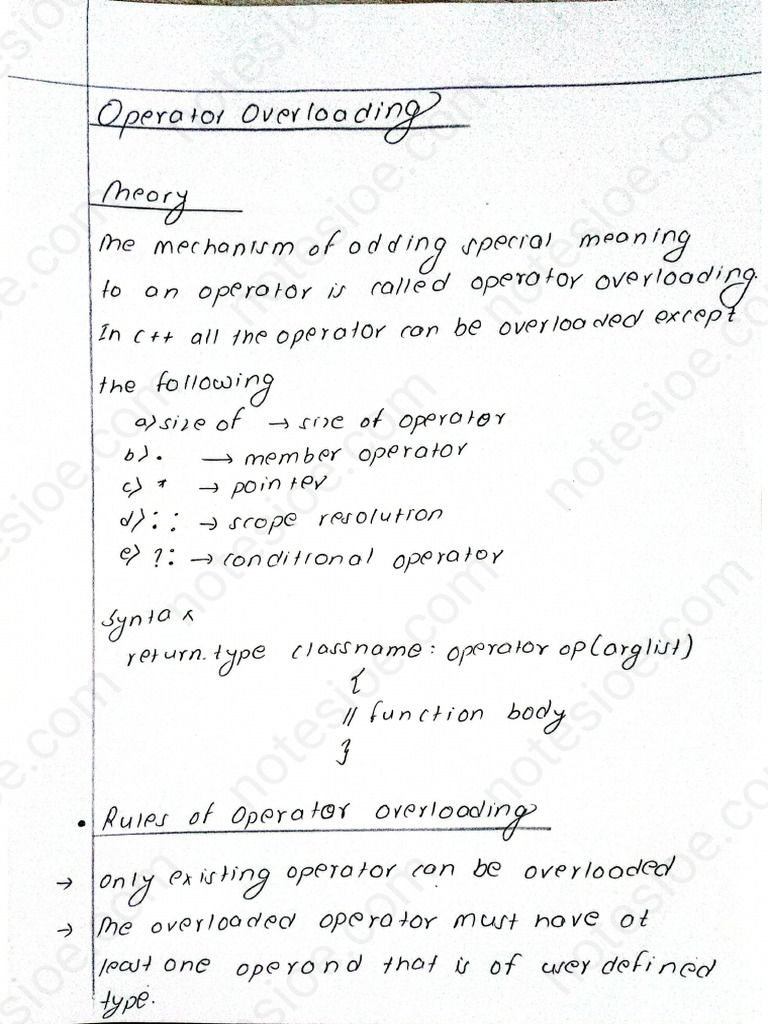 Operator Overloading
Theory
The mechanism of adding special meaning
to an operator is called operator overloading.
In c++ all the operator can be overloaded except
the following
a) size of → size of operator
b) . → member operator
c) * → pointer
d) : : → scope resolution
e) ? : → conditional operator
Syntax
return.type classname : operator op(arglist)
{
// function body
}
• Rules of Operator overloading
→ Only existing operator can be overloaded
→ The overloaded operator must have at
least one operand that is of user defined
type.
notesioe.com